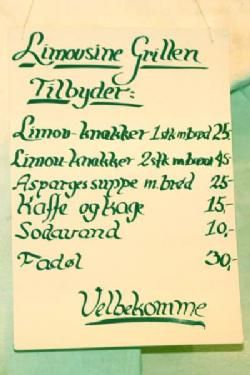 Limousine Grillen
Tilbyder:
Limou-knakker 1 stk m. brød 25-
Limou-knakker 2 stk m. brød 45-
Aspargessuppe m. brød 25-
Kaffe og kage 15,-
Sodavand 10,-
Fadøl 30,-
Velbekomme